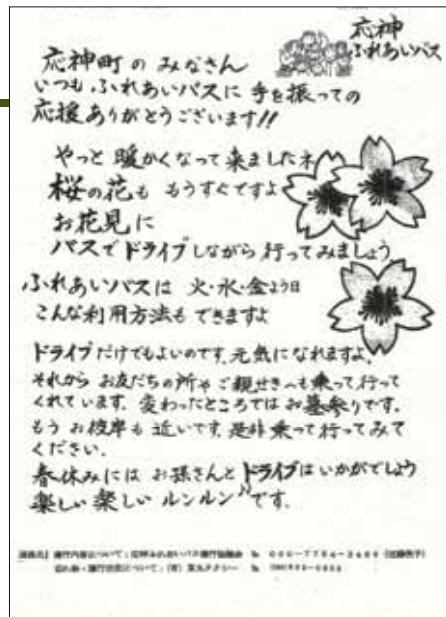 応神
ふれあいバス
応神町の みなさん
いつも ふれあいバスに 手を振っての
応援ありがとうございます!!
やっと 暖かくなって来ましたネ
桜の花も もうすぐですよ
お花見に
バスでドライブしながら 行ってみましょう
ふれあいバスは 火・水・金よう日
こんな利用方法も できますよ
ドライブだけでもよいのです。元気になれますよ。
それから お友だちの所や ご親せきへも 乗って行って
くれています。変わったところでは お墓参りです。
もう お彼岸も 近いです。是非 乗って行ってみて
ください。
春休みには お孫さんと ドライブは いかがでしょう
楽しい 楽しい ルンルン♪です。